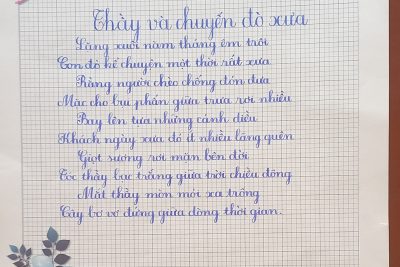 Thầy và chuyến đò xưa
Lặng xuôi năm tháng êm trôi
Con đò kể chuyện một thời rất xưa
Rằng người chèo chống đón đưa
Mặc cho bụi phấn giữa trưa rơi nhiều
Bay lên tựa những cánh diều
Khách ngày xưa đó ít nhiều lãng quên
Giọt sương rơi mặn bên đời
Tóc thầy bạc trắng giữa trời chiều đông
Mắt thầy mòn mỏi xa trông
Cây bơ vơ đứng giữa dòng thời gian.